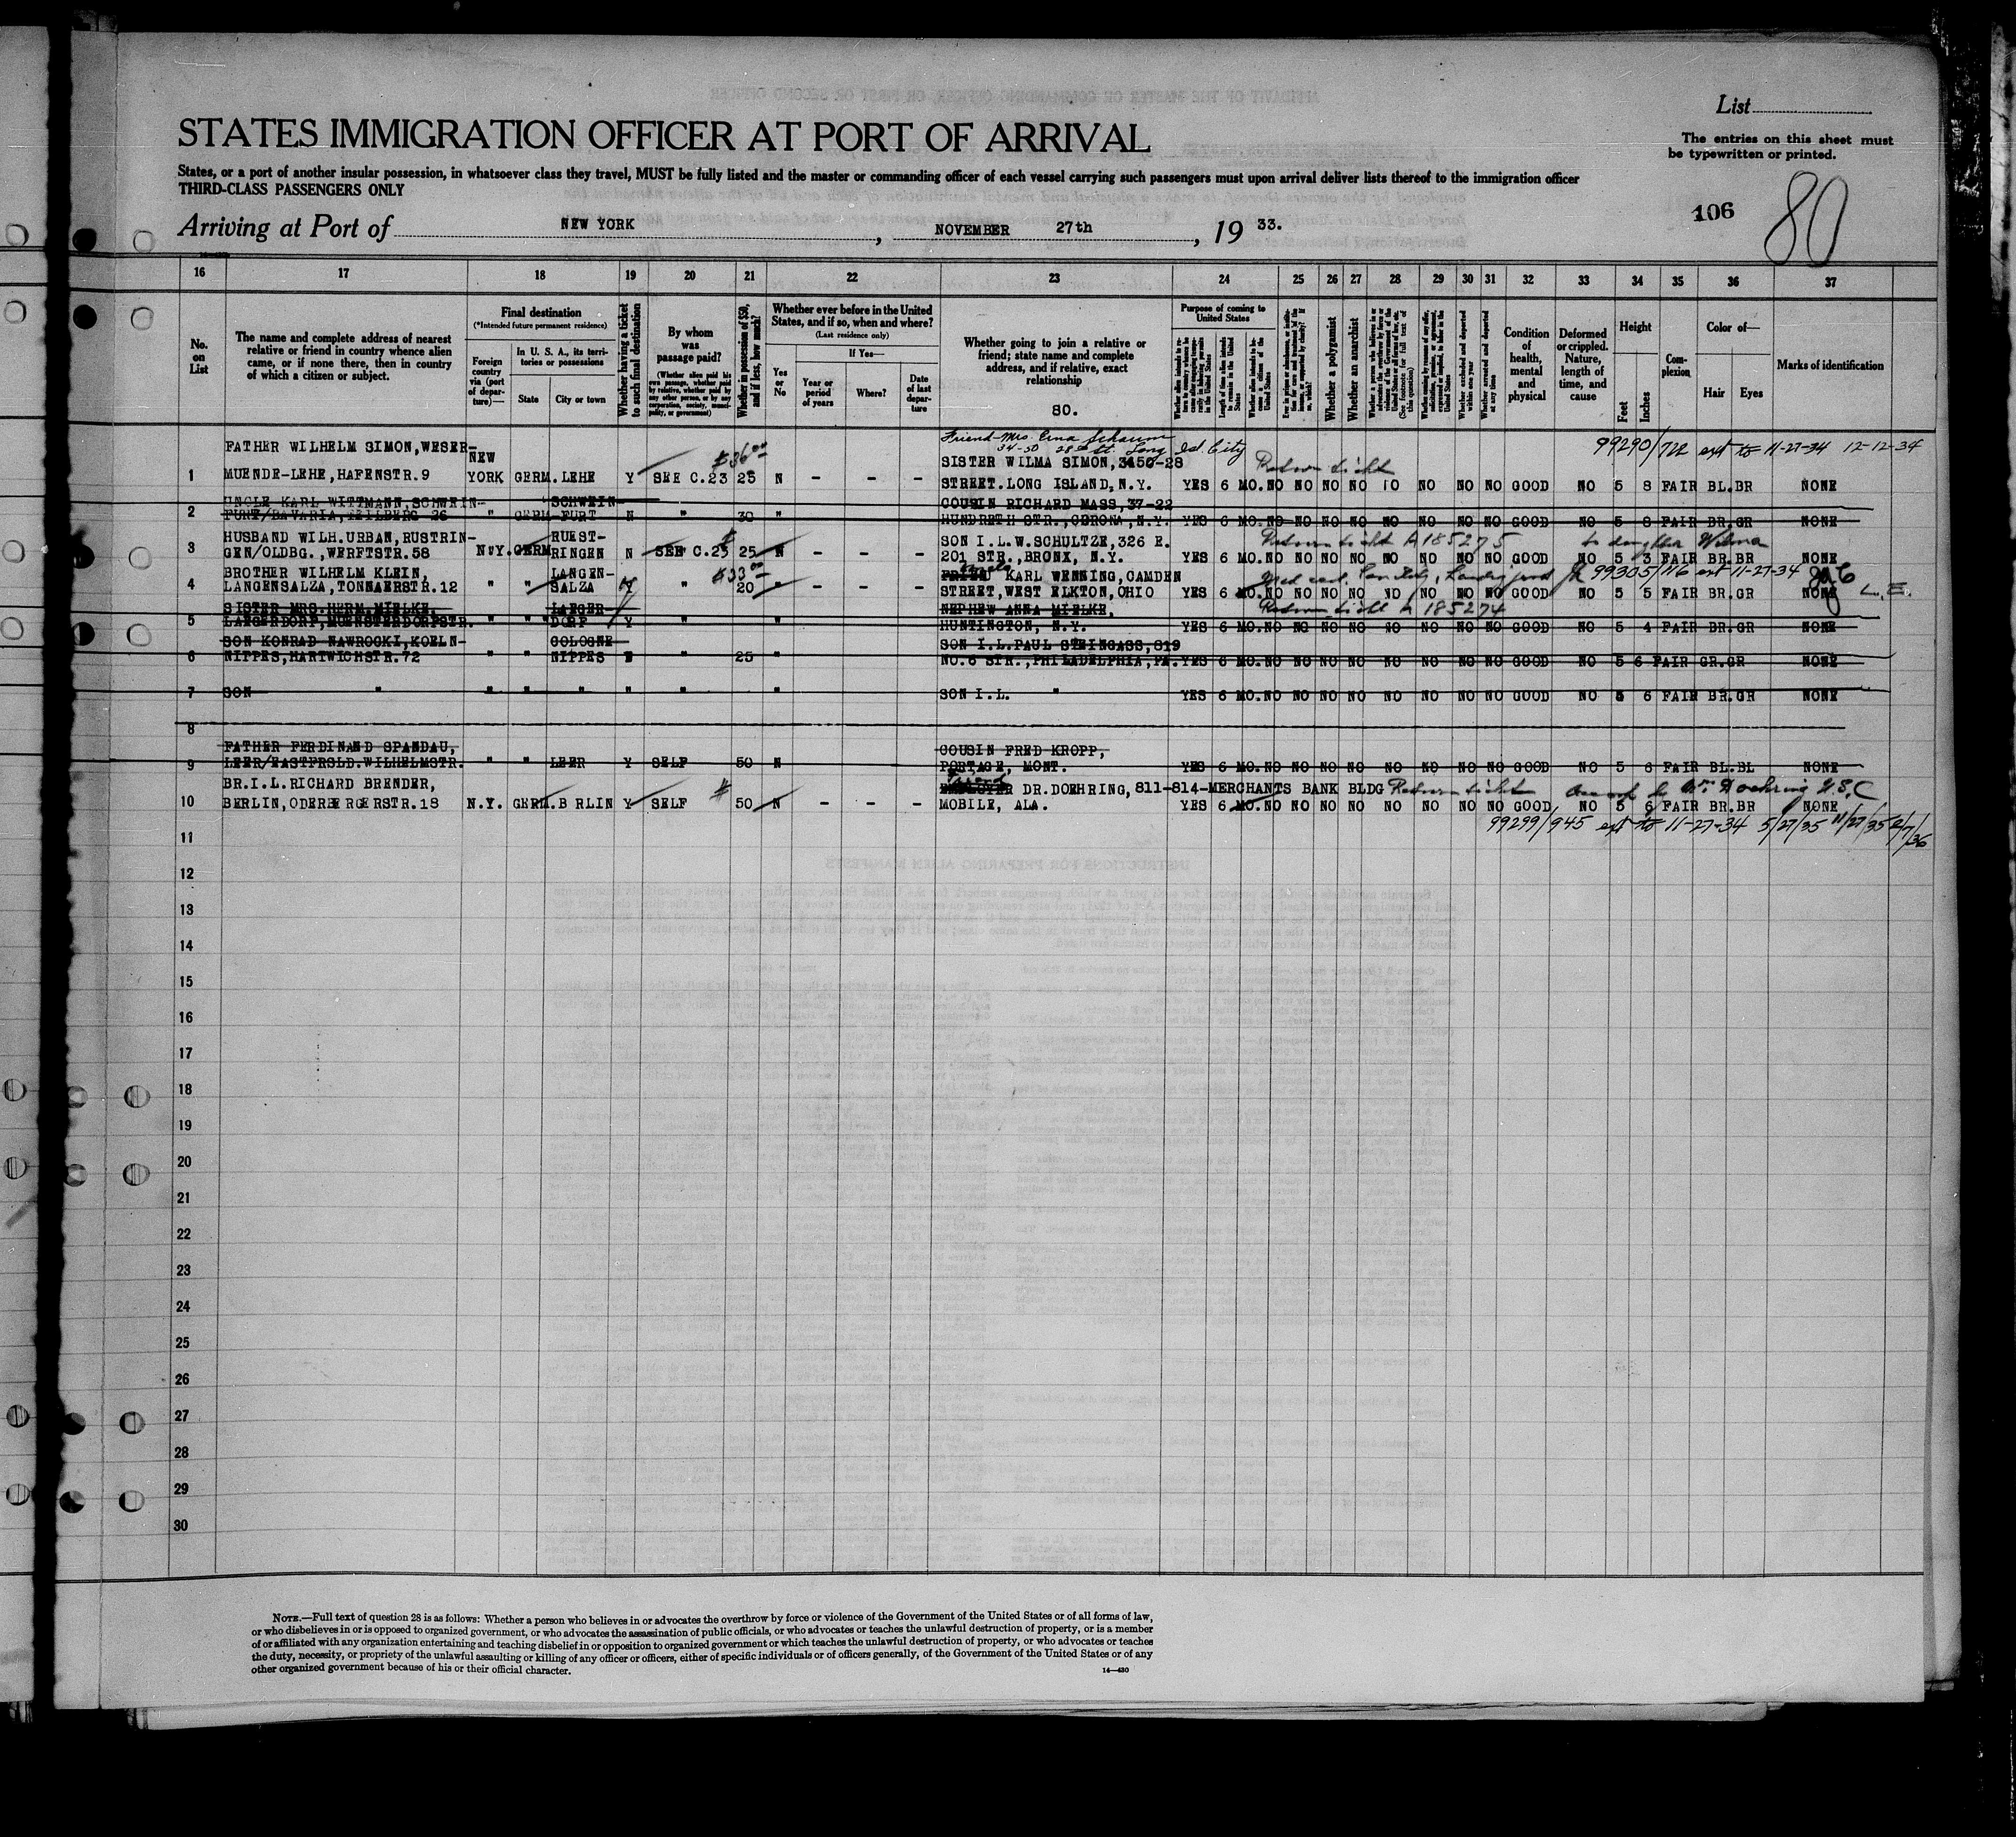 List
STATES IMMIGRATION OFFICER AT PORT OF ARRIVAL
The entries on this sheet must
be typewritten or printed.
States, or a port of another insular possession, in whatsoever class they travel, MUST be fully listed and the master or commanding officer of each vessel carrying such passengers must upon arrival deliver lists thereof to the immigration officer
THIRD-CLASS PASSENGERS ONLY
106 80
Arriving at Port of NEW YORK, NOVEMBER 27th, 19 33.
16 17 18 19 20 21 22 23 24 25 26 27 28 29 30 31 32 33 34 35 36 37
No. on List
The name and complete address of nearest
relative or friend in country whence alien
came, or if none there, then in country
of which a citizen or subject.
Final destination
(*Intended future permanent residence)
Foreign country via (port of departure)—
In U. S. A., its territories or possessions
State
City or town
Whether having a ticket to such final destination
By whom was passage paid?
(Whether alien paid his own passage, whether paid by relative, whether paid by any other person, or by any corporation, society, municipality, or government)
Whether in possession of $50, and if less, how much?
Whether ever before in the United
States, and if so, when and where?
(Last residence only)
Yes or No
If Yes—
Year or period of years
Where?
Date of last departure
Whether going to join a relative or
friend; state name and complete
address, and if relative, exact
relationship
80.
Purpose of coming to United States
Whether a polygamist
Whether an anarchist
(See footnote for full text of this question)
Whether excluded and deported within one year
Whether arrested and deported at any time
Condition of health, mental and physical
Deformed or crippled. Nature, length of time, and cause
Height
Feet
Inches
Complexion
Color of—
Hair
Eyes
Marks of identification
Friend-Mrs.
34-50 28 St. Long Isl. City
99290/722 ext to 11-27-34 12-12-34
FATHER WILHELM SIMON, WESER- NEW $36.00 SISTER WILMA SIMON, 3450-28 Return ticket
1 MUENDE-LEHE, HAFENSTR.9 YORK GERM. LEHE Y SEE C.23 25 N - - - STREET. LONG ISLAND, N.Y. YES 6 MO. NO NO NO NO NO NO NO NO GOOD NO 5 8 FAIR BL. BR NONE
UNCLE KARL WITTMANN, SCHWEIN- SCHWEIN- COUSIN RICHARD MASS, 37-22
2 FURT/BAVARIA, 26 " GERM FURT N " 30 " HUNDRETH STR., CORONA, N.Y. YES 6 MO. NO NO NO NO NO NO NO NO GOOD NO 5 8 FAIR BR. GR NONE
HUSBAND WILH. URBAN, RUSTRIN- RUEST- $ SON I.L.W. SCHULTZE, 326 E. Return ticket A185275 to daughter Wilma
3 GEN/OLDBG., WERFTSTR.58 N.Y. GERM RINGEN N SEE C.23 25 N - - - 201 STR., BRONX, N.Y. YES 6 MO. NO NO NO NO NO NO NO NO GOOD NO 5 3 FAIR BR. BR NONE
BROTHER WILHELM KLEIN, LANGEN- $33.00 KARL WENNING, CAMDEN 99305/116 ext 11-27-34
4 LANGENSALZA, TONNAERSTR.12 " " SALZA Y " 20 " - - - STREET, WEST ELKTON, OHIO YES 6 MO. NO NO NO NO NO NO NO NO GOOD NO 5 5 FAIR BR. GR NONE L.E.
SISTER MRS. HERM. MIELKE, LAEGER- NEPHEW ANNA MIELKE, Return ticket A 185274
5 LAEGERDORF, MUENSTERDORFSTR. " " DORF Y " " HUNTINGTON, N.Y. YES 6 MO. NO NO NO NO NO NO NO NO GOOD NO 5 4 FAIR BR. GR NONE
SON KONRAD NAWROCKI, KOELN- COLOGNE- SON I.L. PAUL STEINGASS, 819
6 NIPPES, HARTWICHSTR.72 " " NIPPES " 25 " NO.6 STR., PHILADELPHIA, PA. YES 6 MO. NO NO NO NO NO NO NO NO GOOD NO 5 6 FAIR GR. GR NONE
7 SON " " " " " " " SON I.L. " YES 6 MO. NO NO NO NO NO NO NO NO GOOD NO 5 6 FAIR BR. GR NONE
8
FATHER FERDINAND SPANDAU, COUSIN FRED KROPP,
9 LEER/EASTFRSLD. WILHELMSTR. " " LEER Y SELF 50 N PORTAGE, MONT. YES 6 MO. NO NO NO NO NO NO NO NO GOOD NO 5 6 FAIR BL. BL NONE
BR.I.L. RICHARD BRENDER, $ DR. DOEHRING, 811-814-MERCHANTS BANK BLDG Return ticket
10 BERLIN, ODERBERGERSTR.18 N.Y. GERM. B RLIN Y SELF 50 N - - - MOBILE, ALA. YES 6 MO. NO NO NO NO NO NO NO NO GOOD NO 5 6 FAIR BR. BR NONE
99299/945 ext to 11-27-34 5/27/35 11/27/35 2/7/36
11
12
13
14
15
16
17
18
19
20
21
22
23
24
25
26
27
28
29
30
NOTE.—Full text of question 28 is as follows: Whether a person who believes in or advocates the overthrow by force or violence of the Government of the United States or of all forms of law,
or who disbelieves in or is opposed to organized government, or who advocates the assassination of public officials, or who advocates or teaches the unlawful destruction of property, or is a member
of or affiliated with any organization entertaining and teaching disbelief in or opposition to organized government or which teaches the unlawful destruction of property, or who advocates or teaches
the duty, necessity, or propriety of the unlawful assaulting or killing of any officer or officers, either of specific individuals or of officers generally, of the Government of the United States or of any
other organized government because of his or their official character.
14—430